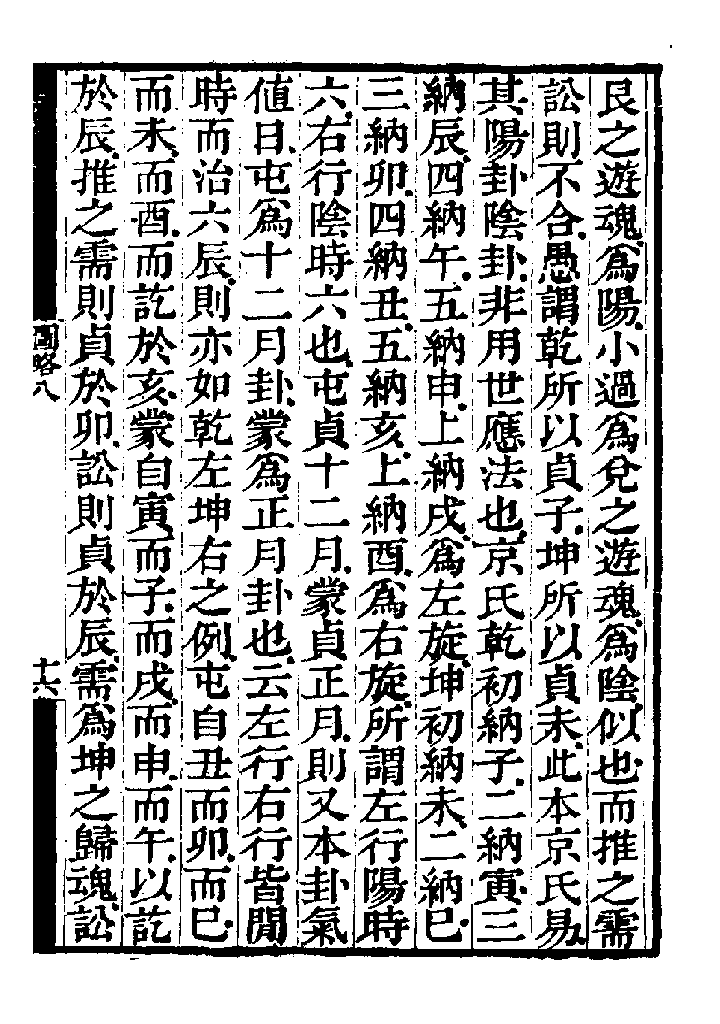 艮之遊魂爲陽小過爲兌之遊魂爲陰似也而推之需
訟則不合愚謂乾所以貞子坤所以貞未此本京氏易
其陽卦陰卦非用世應法也京氏乾初納子二納寅三
納辰四納午五納申上納戌爲左旋坤初納未二納巳
三納卯四納丑五納亥上納酉爲右旋所謂左行陽時
六右行陰時六也屯貞十二月蒙貞正月則又本卦氣
値日屯爲十二月卦蒙爲正月卦也云左行右行皆閒
時而治六辰則亦如乾左坤右之例屯自丑而卯而巳
而未而酉而訖於亥蒙自寅而子而戌而申而午以訖
於辰推之需則貞於卯訟則貞於辰需爲坤之歸魂訟
圖略八
十六